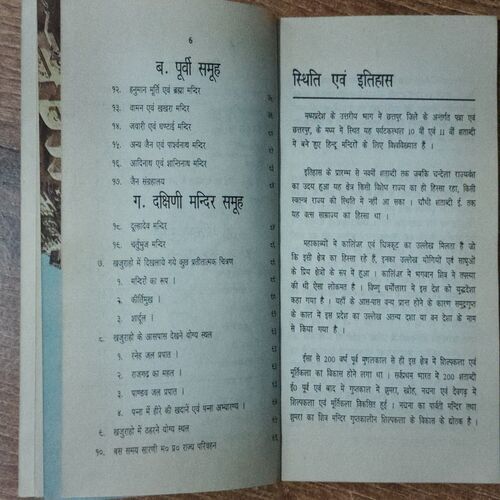 ६
ब. पूर्वी समूह
१२. हनुमान मूर्ति एवं ब्रह्मा मन्दिर
१३. वामन एवं खखरा मन्दिर
१४. जवारी एवं घण्टाई मन्दिर
१५. अन्य जैन एवं पार्श्वनाथ मन्दिर
१६. आदिनाथ एवं शान्तिनाथ मन्दिर
१७. जैन संग्रहालय
ग. दक्षिणी मन्दिर समूह
१८. दुलादेव मन्दिर
१६. चर्तुभुज मन्दिर
७. खजुराहो में दिखलाये गये कुछ प्रतीतात्मक चित्रण
१. मन्दिरों का रूप ।
२. कीर्तिमुख ।
३. शार्दूल ।
८. खजुराहो के आसपास देखने योग्य स्थल
१. रनेह जल प्रपात ।
२. राजगढ़ का महल ।
३. पाण्डव जल प्रपात ।
४. पन्ना में हीरे की खदाने एवं पन्ना अभ्यारण्य ।
६. खजुराहो में ठहरने योग्य स्थल
१०. बस समय सारणी म० प्र० राज्य परिवहन
स्थिति एवं इतिहास
मध्यप्रदेश के उत्तरीय भाग में छतरपुर जिले के अन्तर्गत पन्ना एवं
छत्तरपुर, के मध्य में स्थित यह पर्यटकस्थल 10 वी एवं 11 वीं शताब्दी
में बने हुए हिन्दू मन्दिरों के लिए विश्वविख्यात है ।
इतिहास के प्रारम्भ से नवमी शताब्दी तक जबकि चन्देला राज्यवंश
का उदय हुआ यह क्षेत्र किसी विशेष राज्य का ही हिस्सा रहा, किसी
स्वतन्त्र राज्य की स्थिति में नहीं आ सका । चौथी शताब्दी ई. तक
यह वत्स साम्राज्य का हिस्सा था ।
महाकाव्यों में कालिंजर एवं चित्रकूट का उल्लेख मिलता है जो
कि इसी क्षेत्र का हिस्सा रहे हैं, इनका उल्लेख योगियों एवं साधुओं
के प्रिय क्षेत्रों के रूप में हुआ । कालिंजर में भगवान शिव ने तपस्या
की थी ऐसा लोकमत है । विष्णु धर्मोत्तरा में इस देश को युद्धदेश
कहा गया है । यहाँ के आस-पास वन्य प्रान्त होने के कारण समुद्रगुप्त
के काल में इस प्रदेश का उल्लेख अतन्य दशा या वन देश के नाम
से किया गया है ।
ईसा से 200 वर्ष पूर्व मृगलकाल से ही इस क्षेत्र में शिल्पकला एवं
मूर्तिकला का विकास होने लगा था । सर्वप्रथम भारत में 200 शताब्दी
ई० पूर्व एवं बाद में गुप्तकाल में भ्रुमरा, खोह, नचना एवं देवगढ़ में
शिल्पकला एवं मूर्तिकला विकसित हुई । नचना का पार्वती मन्दिर तथा
भ्रुमरा का शिव मन्दिर गुप्तकालीन शिल्पकला के विकास के द्योतक है ।